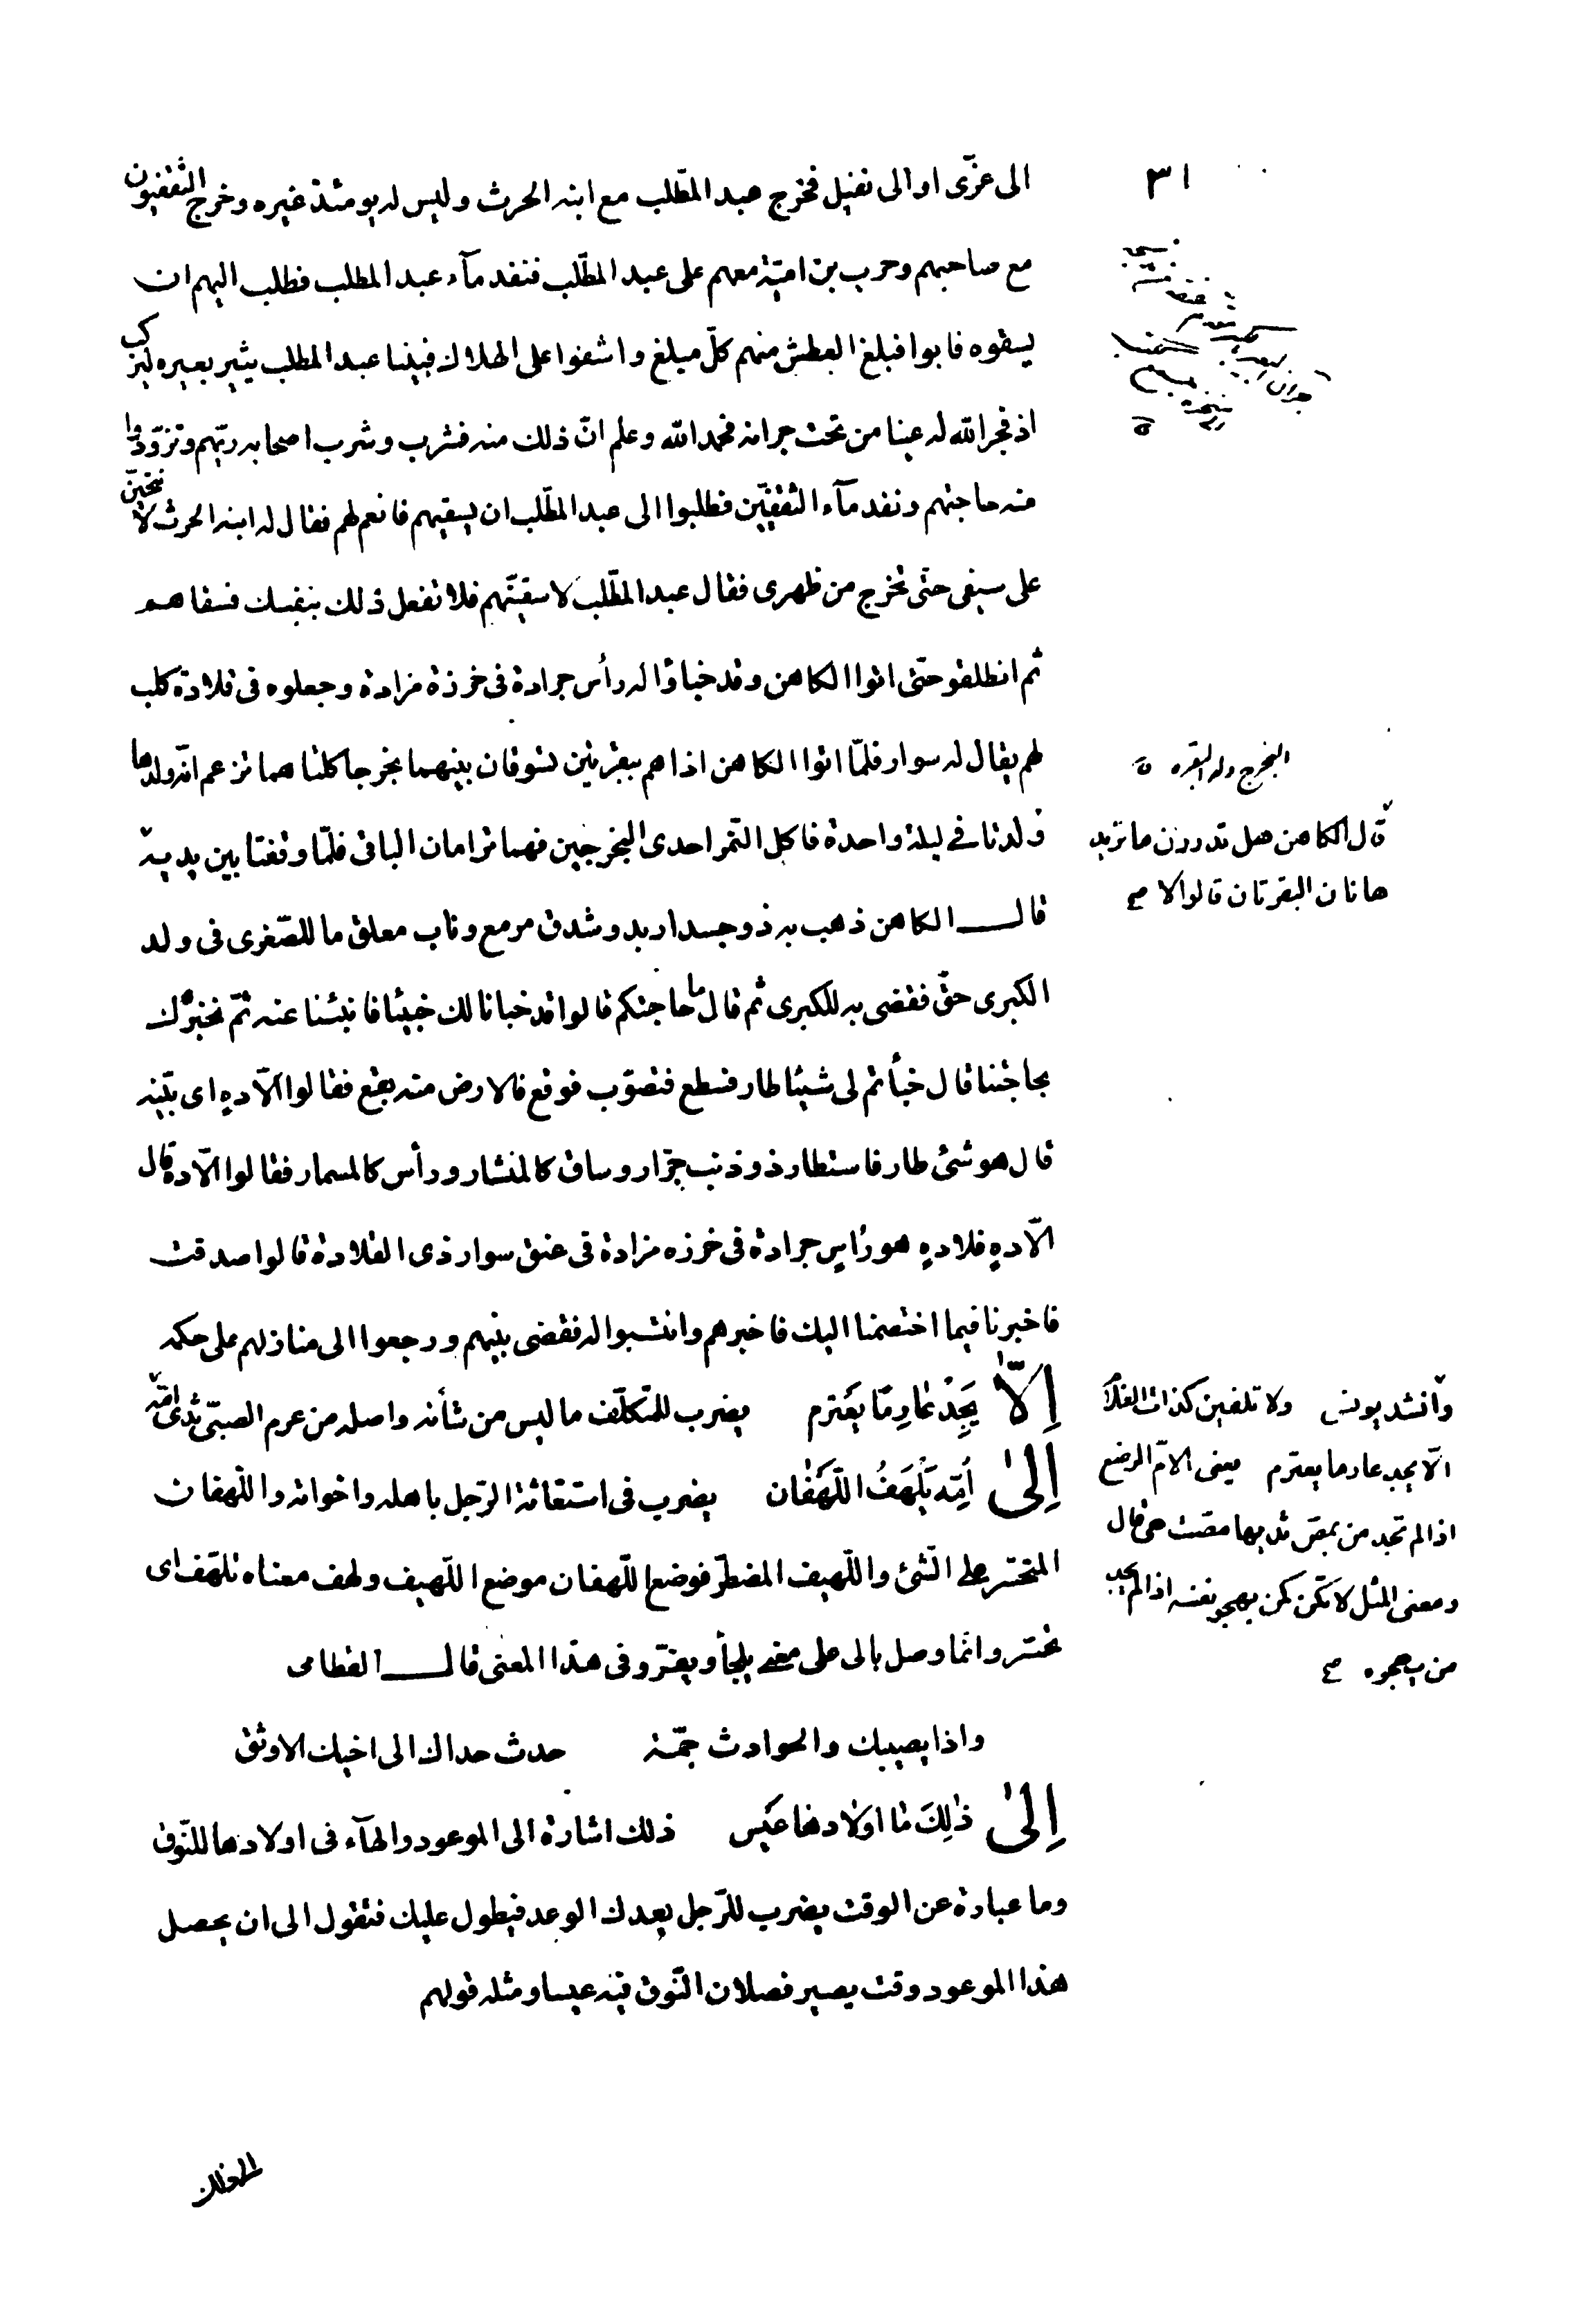 ٣١
الى عزّى او الى نفيل فخرج عبد المطّلب مع ابنه الحرث وليس له يومئذ غيره وخرج الثقفيون
مع صاحبهم وحرب بن اميّة معهم على عبد المطّلب فنفد مآء عبد المطلب فطلب اليهم ان
يسقوه فابوا فبلغ العطش منهم كلّ مبلغ واشفوا على الهلاك فبينا عبد المطلب يثير بعيره ليركب
اذ فجر الله له عينا من تحت جرانه فحمد الله وعلم انّ ذلك منه فشرب وشرب اصحابه ريّهم وتزوّدوا
منه حاجتهم ونفد مآء الثقفيّين فطلبوا الى عبد المطّلب ان يسقيهم فانعم لهم فقال له ابنه الحرث لا نحنين
على سيفى حتّى تخرج من ظهرى فقال عبد المطّلب لاسقينّهم فلا تفعل ذلك بنفسك فسقاهم
ثم انطلقو حتّى اتوا الكاهن وقد خباؤا له رأس جرادة فى خرزة مزادة وجعلوه فى قلادة كلب
لهم يقال له سوار فلمّا اتوا الكاهن اذا هم ببقرتين تسوقان بينهما بخرجا كلتاهما تزعم انّه ولدها
ولدتا فے ليلة واحدة فاكل النّمر احدى البخرجين فهما ترامان الباقى فلمّا وقفتا بين يديه
قال الكاهن ذهب به ذو جسد اربد وشدق مرمع وناب معلق ما للصّغرى فى ولد
الكبرى حقّ فقضى به للكبرى ثم قال ما حاجتكم قالوا قد خبانا لك خبيئا فانبئنا عنه ثمّ نخبرك
بحاجتنا قال خبأتم لى شيئا طار فسطع فتصوّب فوقع فالارض منه بقع فقالوا الّا دهٍ اى بيّنه
قال هو شئ طار فاستطار ذو ذنب جرّار وساق كالمنشار ورأس كالمسمار فقالوا الّا دة قال
الّا دهٍ فلا دهٍ هو رأس جرادة فى خرزه مزادة فى عنق سوار ذى القلادة قالوا صدقت
فاخبرنا فيما اختصمنا اليك فاخبرهم وانتسبوا له فقضى بينهم ورجعوا الى منازلهم على حكمه
اِلّاٰ يَجِدْ عٰارِمًا يَعْترم يضرب للمتكلّف ما ليس من شأنه واصله من عرم الصبىّ ثدى امّه
اِلىٰ اُمِّه يَلْهَفُ اللّهَفٰان يضرب فى استغاثة الرّجل باهله واخوانه واللّهفان
المتحسّر على الشّئ واللّهيف المضطرّ فوضع اللّهفان موضع اللّهيف ولهف معناه تلهّف اى
تحسّر وانّما وصل بالى على معنى يلجأ ويفرّ وفى هذا المعنى قال القطامى
واذا يصيبك والحوادث جمّة حدث حداك الى اخيك الاوثق
اِلىٰ ذٰلِكَ مٰا اوْلٰادهٰا عيَس ذلك اشارة الى الموعود والهآء فى اولادها للنّوق
وما عبارة عن الوقت يضرب للرّجل يعدك الوعد فيطول عليك فتقول الى ان يحصل
هذا الموعود وقت يصير فصلان النّوق فيه عيسا ومثله قولهم
البخرج ولد البقره
قال الكاهن هل تدرون ما تريد
هاتان البقرتان قالوا لا صح
وانشد يونس ولا تلفين كذات الغلا
الّا يجد عارما يعترم يعنى الامّ المرضع
اذا لم تجد من يمصّ ثديها مصّت هى قال
ومعنى المثل لا تكن كمن يهجو نفسه اذا لم يجد
من يهجوه صح